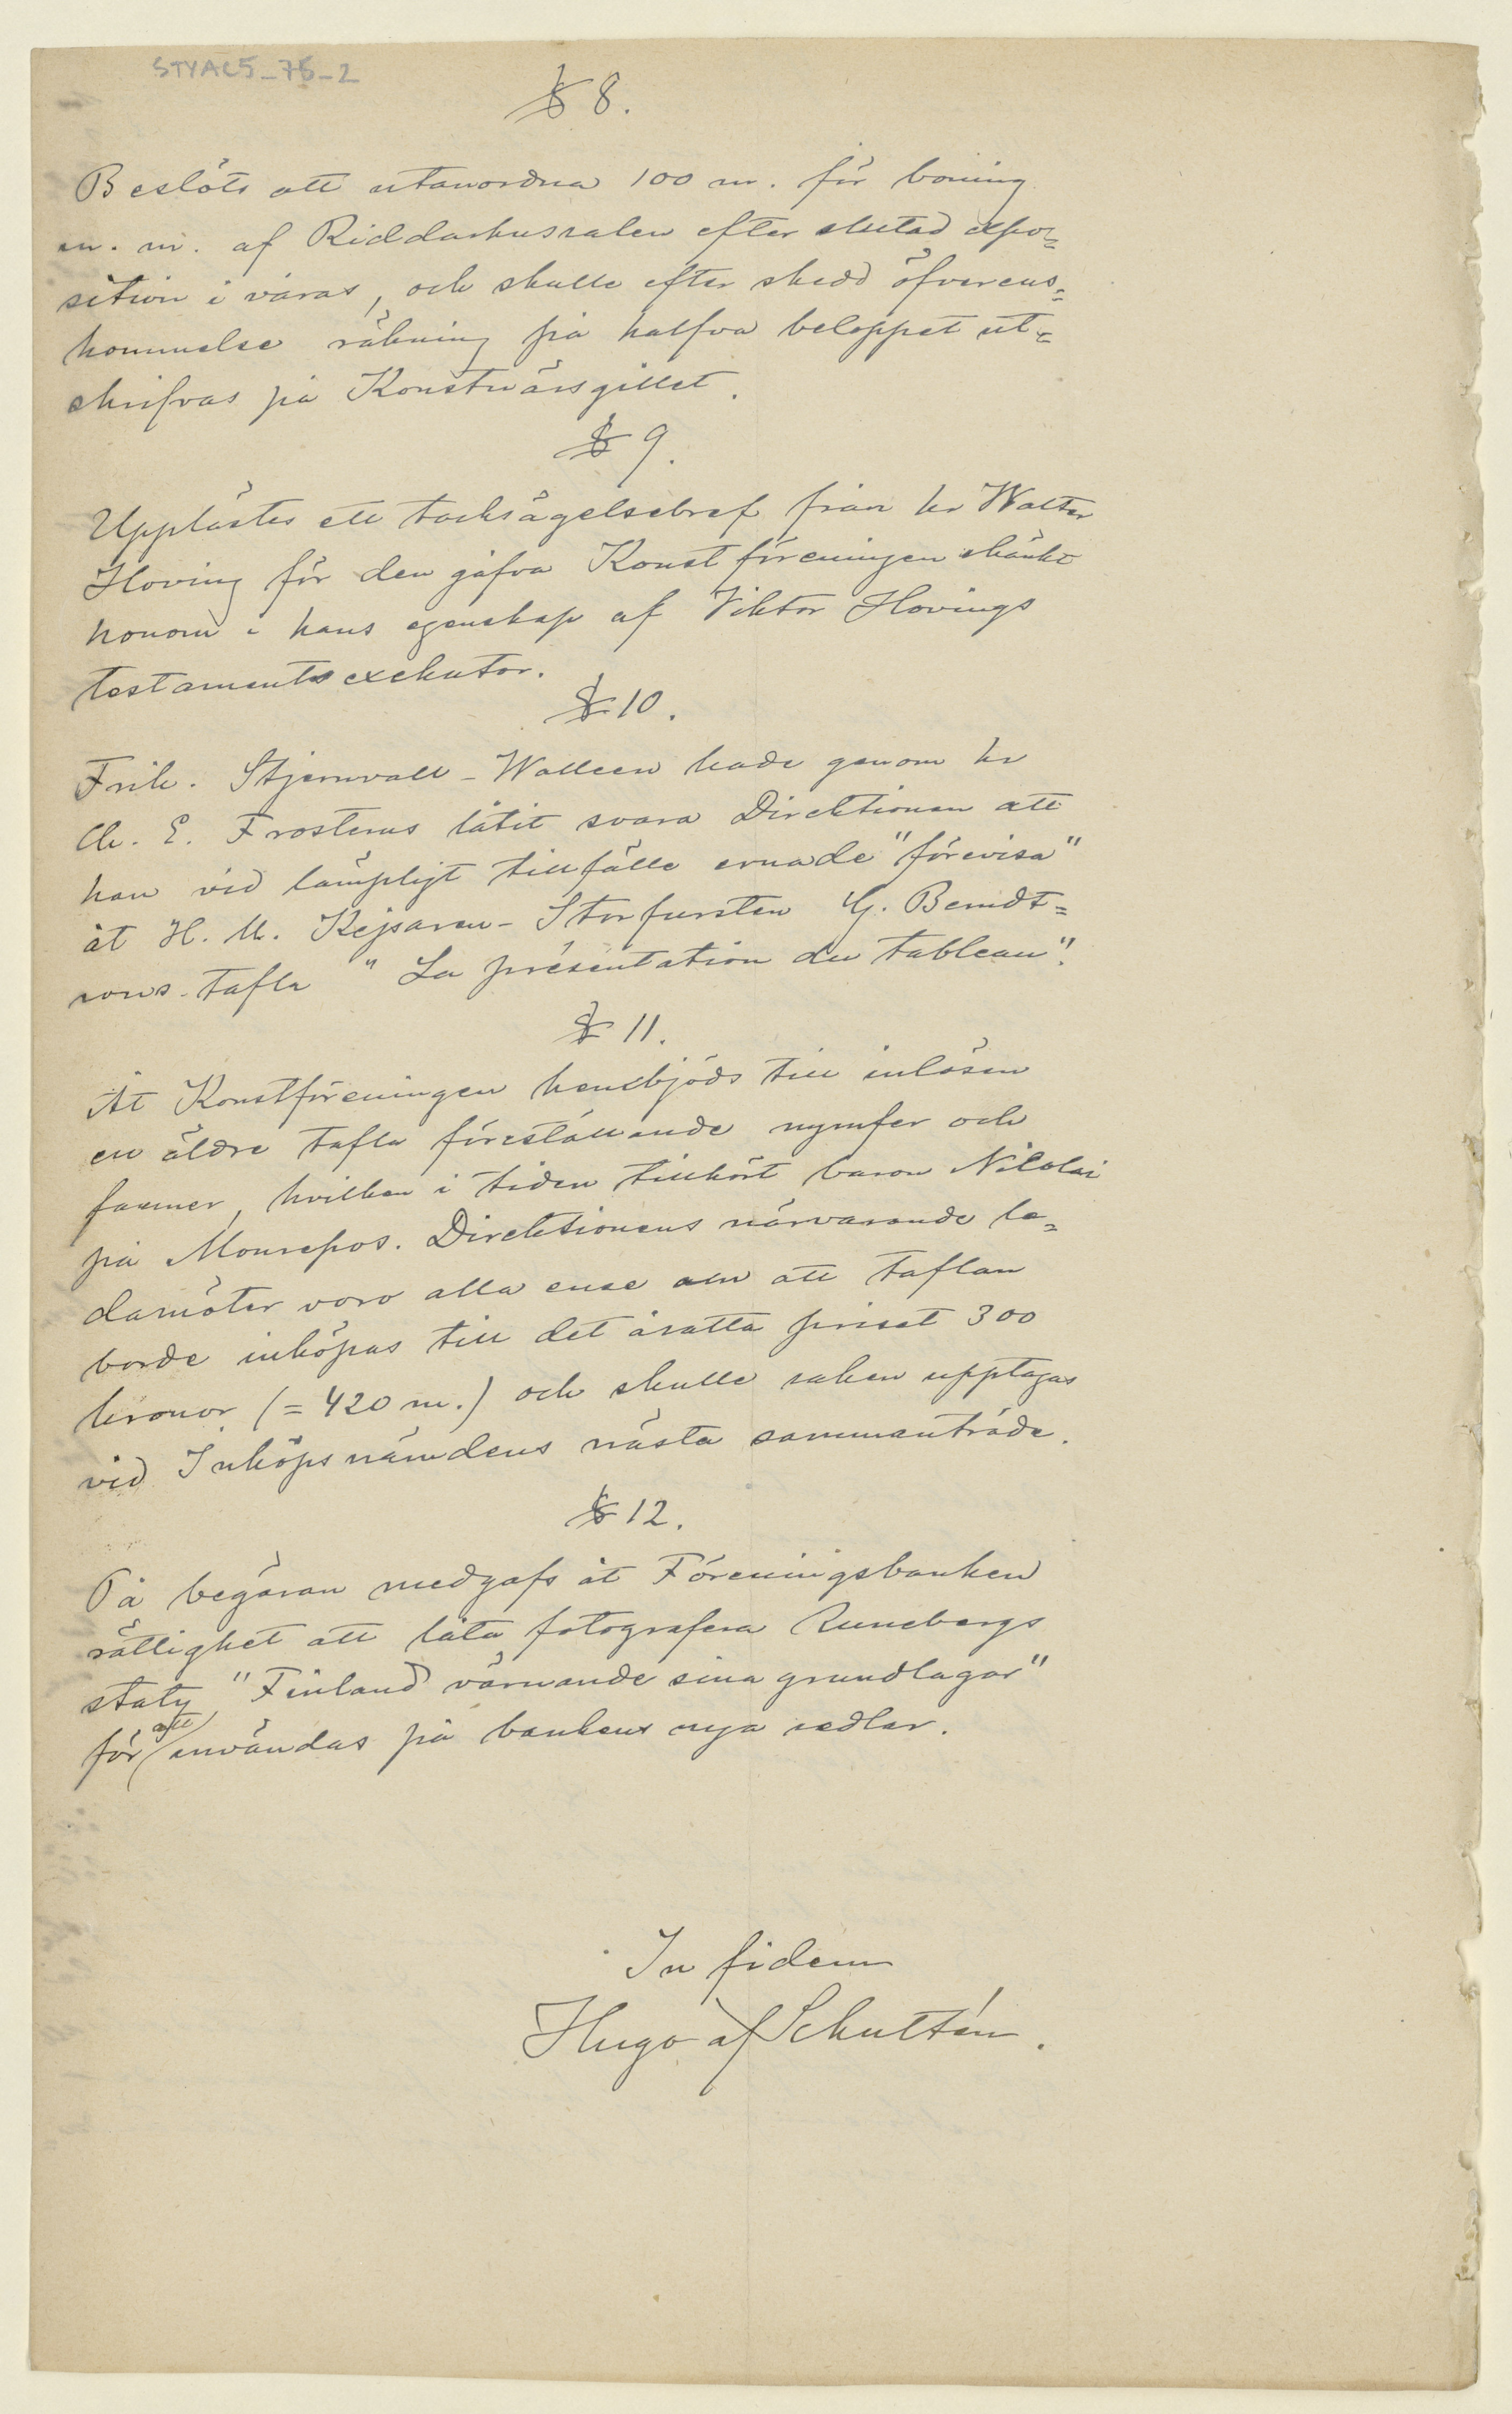 STYAC5_75_2
§ 8.
Beslöts att utanordna 100 m. för boning
m. m. af Riddarhussalen efter slutad expo-
sition i våras, och skulle efter skedd öfverens-
kommelse räkning på halfva beloppet ut-
skrifvas på Konstnärsgillet.
§ 9.
Upplästes ett tacksägelsebref från hr Walter
Hoving för den gåfva Konstföreningen skänkt
honom i hans egenskap af Viktor Hovings
testamentsexekutor.
§ 10.
Frih. Stjernvall-Walleen hade genom hr
Ch. E. Frosterus låtit svara Direktionen att
han vid lämpligt tillfälle ernade "förevisa"
åt H. M. Kejsaren-Storfursten G. Berndt-
sons tafla "La présentation du tableau".
§ 11.
Åt Konstföreningen hembjöds till inlösen
en äldre tafla föreställande nymfer och
fauner, hvilken i tiden tillhört baron Nikolai
på Monrepos. Direktionens närvarande le-
damöter voro alla ense om att taflan
borde inköpas till det åsatta priset 300
kronor (= 420 m.) och skulle saken upptagas
vid Inköpsnämdens nästa sammanträde.
§ 12.
På begäran medgafs åt Föreningsbanken
rättighet att låta fotografera Runebergs
staty "Finland värnande sina grundlagar"
för att användas på bankens nya sedlar.
In fidem
Hugo af Schultén.